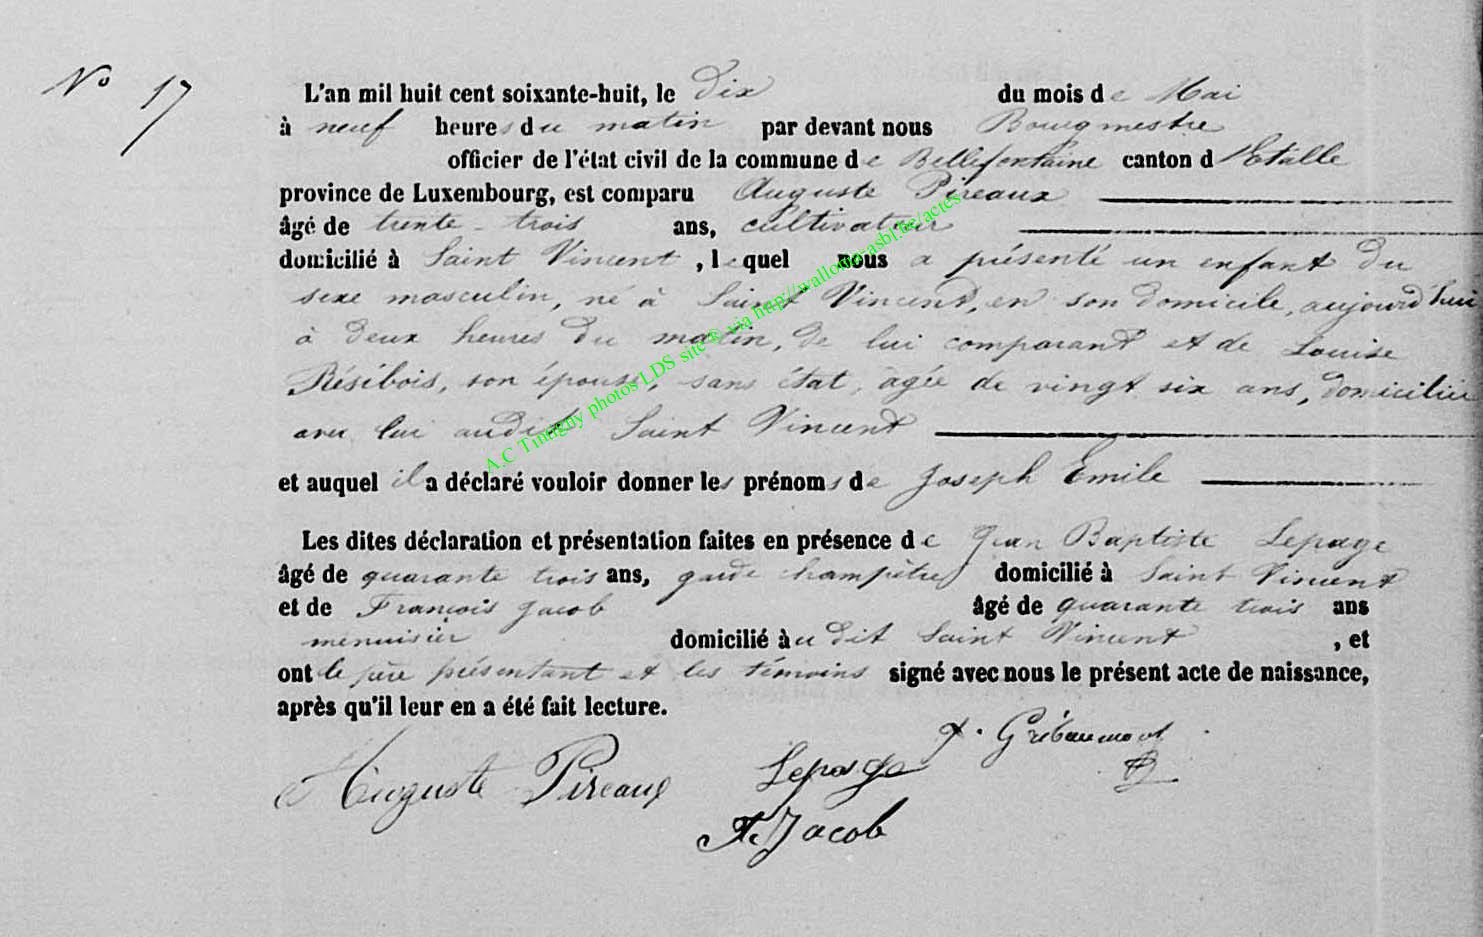 No 17
L'an mil huit cent soixante-huit, le dix du mois de Mai
à neuf heures du matin par devant nous Bourgmestre
officier de l'état civil de la commune de Bellefontaine canton d'Etalle
province de Luxembourg, est comparu Auguste Pireaux
âgé de trente-trois ans, cultivateur
domicilié à Saint Vincent, lequel nous a présenté un enfant du
sexe masculin, né à Saint Vincent, en son domicile, aujourd'hui
à deux heures du matin, de lui comparant et de Louise
Résibois, son épouse, sans état, âgée de vingt six ans, domiciliée
avec lui audit Saint Vincent
et auquel il a déclaré vouloir donner les prénoms de Joseph Emile
Les dites déclaration et présentation faites en présence de Jean Baptiste Lepage
âgé de quarante trois ans, garde champêtre domicilié à Saint Vincent
et de François Jacob âgé de quarante trois ans
menuisier domicilié àudit Saint Vincent, et
ont le père présentant et les témoins signé avec nous le présent acte de naissance,
après qu'il leur en a été fait lecture.
Gribaumont
Auguste Pireaux Lepage
F. Jacob
A.C Tintigny photos LDS site © via http://wallonia-asbl.be/actes